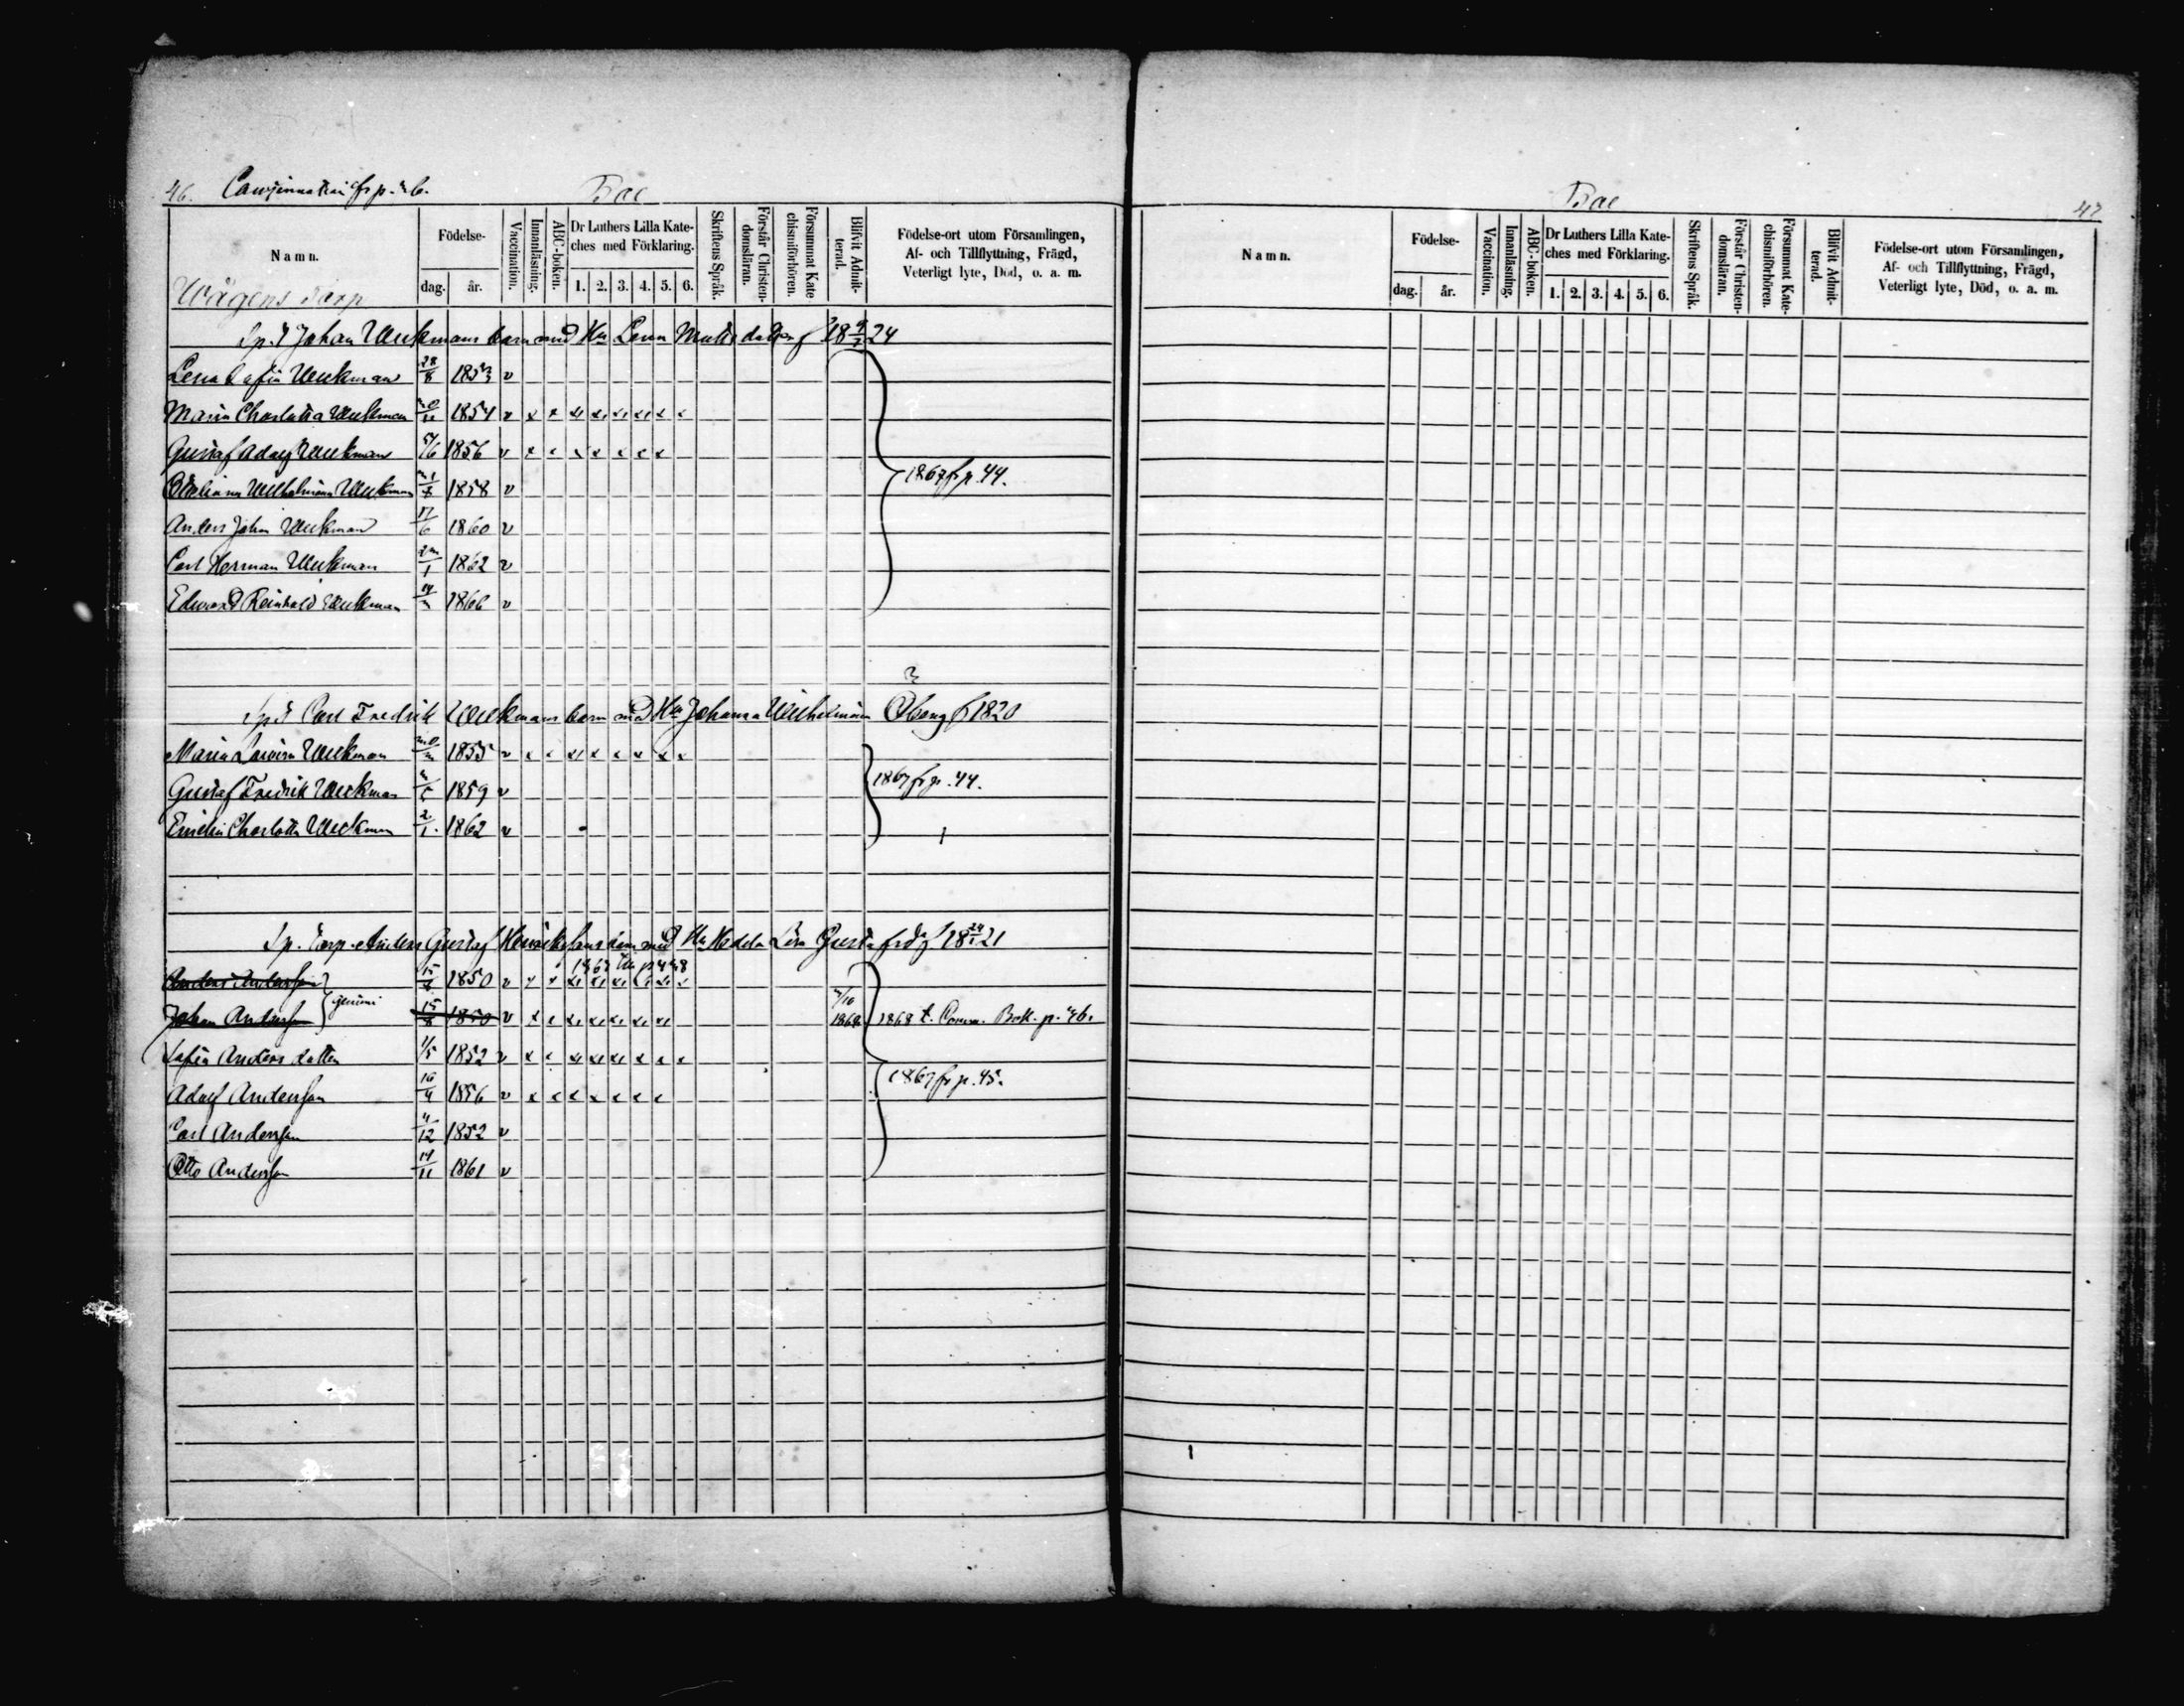 46.
Bae
Namn.
Födelse-
dag.
år.
Vaccination.
Innanläsning.
ABC-boken.
Dr Luthers Lilla Kate-
ches med Förklaring.
1. 2. 3. 4. 5. 6.
Skriftens Språk.
Förstår Christen-
domsläran.
Försummat Kate
chismiförhören.
Blifvit Admit-
terad.
Födelse-ort utom Församlingen,
Af- och Tillflyttning, Frägd,
Veterligt lyte, Död, o. a. m.
Wägens torp
Johan Weckmans barn med Hu Lena 24
Lena Sofia Weckman 28/8 1853 v
Maria Charlotta Weckman 1854 v
Gustaf Adolf Weckman 1856 v
Wilhelmina Weckman 1858 v
1867 fr p. 44.
Anders Johan Weckman 17/6 1860 v
Carl Herman Weckman 1862 v
Edvard Reinhold Weckman 1866 v
Carl Fredrik Weckmans barn med Hu Johanna Wilhelmina Öberg f 1820
Maria Lovisa Weckman 1855 v
Gustaf Fredrik Weckman 1859 v
1867 fr p. 44.
Emelia Charlotta Weckman 2/1 1862 v
Sp. Torp. Anders Gustaf Henriksons barn med Hu Hedda Lisa Gustafsdr f 18 21
Anders Andersson 15/8 1850 v
Johan Andersson gemini 15/8 1850 v 1868 1868 t. Comm. Bok. p. 46.
Sofia Andersdotter 1/5 1852 v
1867 fr p. 45.
Adolf Andersson 16/4 1856 v
Carl Andersson 4/12 1852 v
Otto Andersson 14/11 1861 v
Bae
47
Namn.
Födelse-
dag.
år.
Vaccination.
Innanläsning.
ABC-boken.
Dr Luthers Lilla Kate-
ches med Förklaring.
1. 2. 3. 4. 5. 6.
Skriftens Språk.
Förstår Christen-
domsläran.
Försummat Kate-
chismiförhören.
Blifvit Admit-
terad.
Födelse-ort utom Församlingen,
Af- och Tillflyttning, Frägd,
Veterligt lyte, Död, o. a. m.